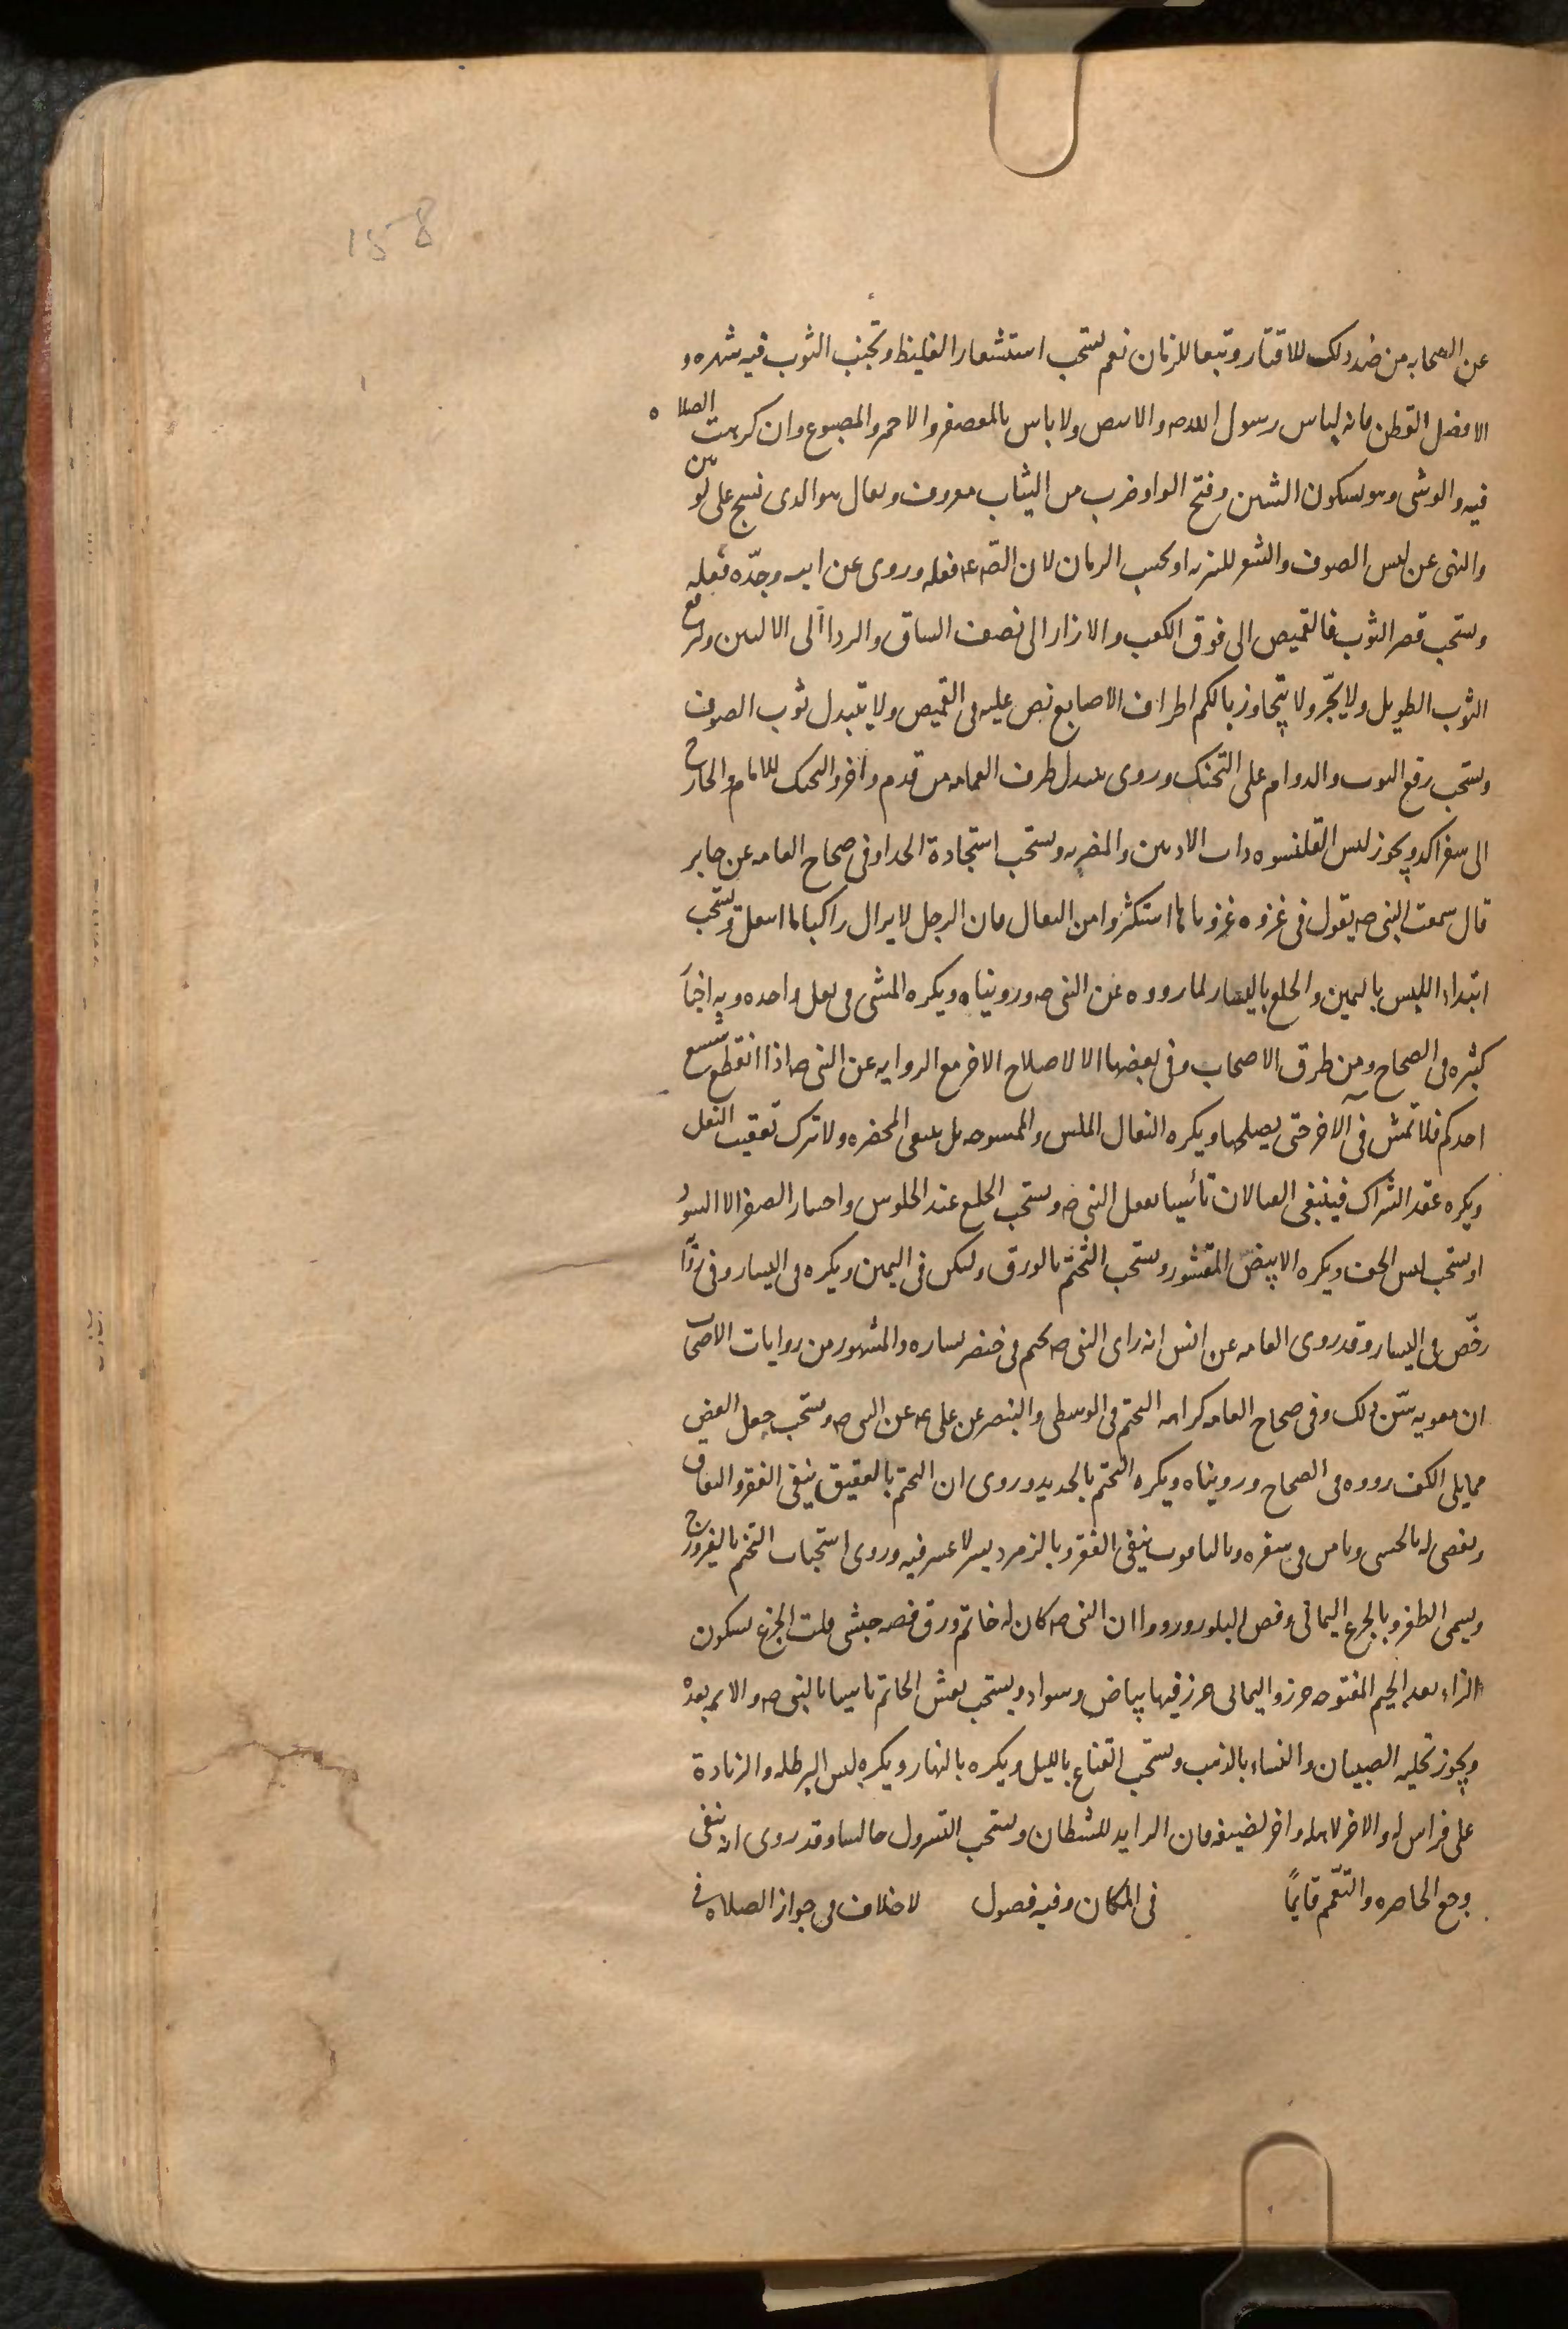 158
عن الصحابه من ضد ذلك للاقتار وتبعا للزمان نعم يستحب استشعار الغليظ وتجنب الثوب فيه شهره و
الافضل القطن فانه لباس رسول الله صه والابيض ولا باس بالمعصفر والاحمر والمصبوغ وان كرهت الصلاه
فيه والوشى وهو بسكون الشين وفتح الواو ضرب من الثياب معروف ويقال هو الذى نسج على لونين
والنهى عن لبس الصوف والشعر للتنزيه او بحسب الزمان لان الصه عه فعله وروى عن ابيه وجدّه فعله
ويستحب قصر الثوب فالقميص الى فوق الكعب والازار الى نصف الساق والرداء الى الاليين وليرفع
الثوب الطويل ولا يجّر ولا يتجاوز بالكم اطراف الاصابع نص عليه فى القميص ولا يتبدل ثوب الصوف
ويستحب رقع الثوب والدوام على التحنك وروى سدل طرف العمامه من قدم واخر والتحنك للامام والخارج
الى سفر اكد ويجوز لبس القلنسوه ذات الاذنين والمضربه ويستحب استجادة الحذاء وفى صحاح العامه عن جابر
قال سمعت النبى صه يقول فى غزوه غزوناها استكثروا من النعال فان الرجل لا يزال راكبا ما انتعل ويستحب
ابتداء اللبس باليمين والخلع باليسار لما رووه عن النبى صه ورويناه ويكره المشى فى نعل واحده وبه اخبار
كثيره فى الصحاح ومن طرق الاصحاب وفى بعضها الا لاصلاح الاخر مع الروايه عن النبى صه اذا انقطع شسع
احدكم فلا تمش فى الاخر حتى يصلحها ويكره النعال الملس والممسوحه بل ينبغى المخصره ولا ترك تعقيب النعل
ويكره عقد الشراك فينبغى القبالان تأسيا بفعل النبى صه ويستحب الخلع عند الجلوس واختيار الصفر الا السود
او يستحب لبس الخف ويكره الابيض المقشور ويستحب التختم بالورق وليكن فى اليمين ويكره فى اليسار وفى روا
رخّص فى اليسار وقد روى العامه عن انس انه راى النبى صه يختم فى خنصر يساره والمشهور من روايات الاصحاب
ان معويه سّن ذلك وفى صحاح العامه كراهه التختم فى الوسطى والبنصر عن على عه عن النبى صه ويستحب جعل الفص
مما يلى الكف رووه فى الصحاح ورويناه ويكره التختم بالحديد وروى ان التختم بالعقيق ينفى الفقر والنفاق
ويقضى له بالحسنى ويامن فى سفره وبالياقوت ينفى الفقر وبالزمرد يسر لا عسر فيه وروى استحباب التختم بالفيروزج
ويسمى الظفر وبالجزع اليمانى وفص البلور ورووا ان النبى صه كان له خاتم ورق فصه حبشى قلت الجزع بسكون
الزاء بعد الجيم المفتوحه خرز واليمانى خرز فيها بياض وسواد ويستحب نقش الخاتم تاسيا بالنبى صه والائمه بعده
ويجوز تحليه الصبيان والنساء بالذهب ويستحب القناع بالليل ويكره بالنهار ويكره لبس البرطله والزيادة
على فراش له والاخر لاهله واخر لضيفه فان الزايد للشيطان ويستحب التسرول جالسا وقد روى انه ينفى
وجع الخاصره والتعّمم قايمًا فى المكان وفيه فصول لا خلاف فى جواز الصلاه فى